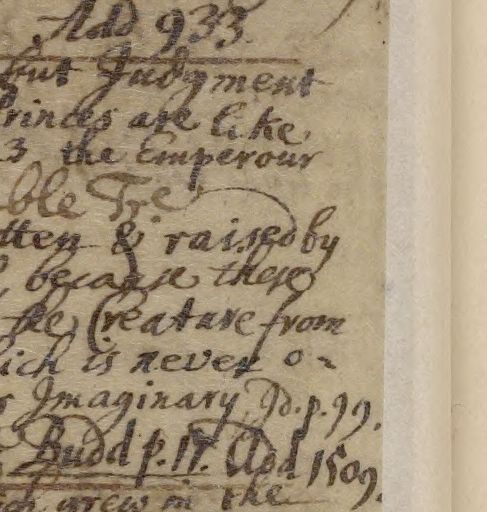 Add 933.
but Judgment
Princes are like
3 the Emperour
ble Tre
tten & raised by
, because these
the Creature from
ich is never o=
Imaginary, Id. p. 99.
Budd p. 17. Add 1509.
grew in the